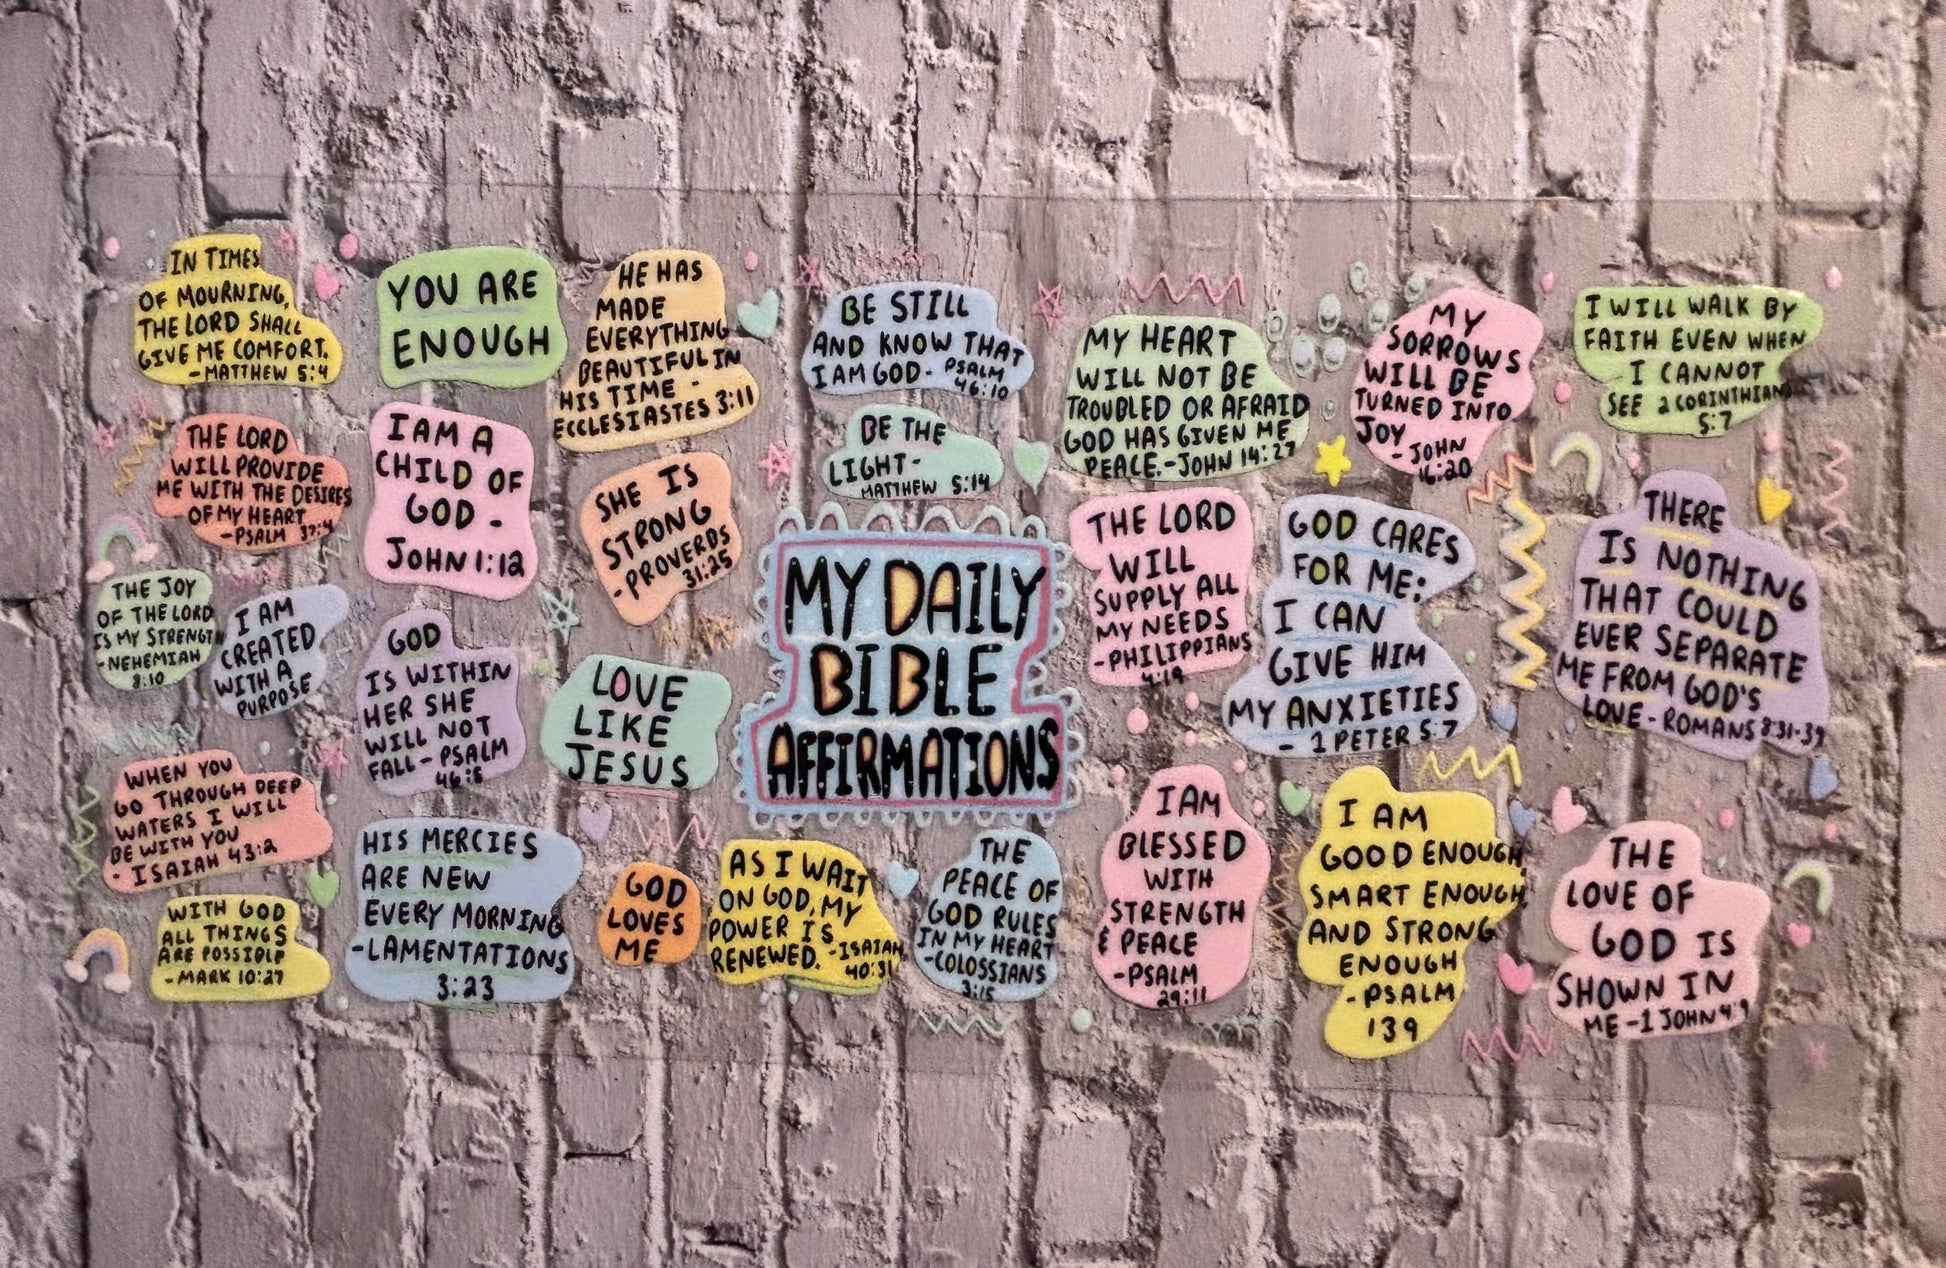 IN TIMES
OF MOURNING,
THE LORD SHALL
GIVE ME COMFORT.
-MATTHEW 5:4
YOU ARE
ENOUGH
HE HAS
MADE
EVERYTHING
BEAUTIFUL IN
HIS TIME -
ECCLESIASTES 3:11
BE STILL
AND KNOW THAT
I AM GOD - PSALM
46:10
MY HEART
WILL NOT BE
TROUBLED OR AFRAID
GOD HAS GIVEN ME
PEACE.-JOHN 14:27
MY
SORROWS
WILL BE
TURNED INTO
JOY
-JOHN
16:20
I WILL WALK BY
FAITH EVEN WHEN
I CANNOT
SEE 2 CORINTHIANS
5:7
THE LORD
WILL PROVIDE
ME WITH THE DESIRES
OF MY HEART
-PSALM 37:4
I AM A
CHILD OF
GOD -
JOHN 1:12
SHE IS
STRONG
-PROVERDS
31:25
BE THE
LIGHT-
MATTHEW 5:14
THE LORD
WILL
SUPPLY ALL
MY NEEDS
-PHILIPPIANS
4:19
GOD CARES
FOR ME:
I CAN
GIVE HIM
MY ANXIETIES
- 1 PETER 5:7
THERE
IS NOTHING
THAT COULD
EVER SEPARATE
ME FROM GOD'S
LOVE - ROMANS 8:31-39
THE JOY
OF THE LORD
IS MY STRENGTH
-NEHEMIAH
8:10
I AM
CREATED
WITH A
PURPOSE
GOD
IS WITHIN
HER SHE
WILL NOT
FALL - PSALM
46:5
LOVE
LIKE
JESUS
MY DAILY
BIBLE
AFFIRMATIONS
WHEN YOU
GO THROUGH DEEP
WATERS I WILL
BE WITH YOU
- ISAIAH 43:2
HIS MERCIES
ARE NEW
EVERY MORNING
-LAMENTATIONS
3:23
GOD
LOVES
ME
AS I WAIT
ON GOD, MY
POWER IS
RENEWED. -ISAIAH
40:31
THE
PEACE OF
GOD RULES
IN MY HEART
-COLOSSIANS
3:15
I AM
BLESSED
WITH
STRENGTH
& PEACE
-PSALM
29:11
I AM
GOOD ENOUGH,
SMART ENOUGH,
AND STRONG
ENOUGH
-PSALM
139
THE
LOVE OF
GOD IS
SHOWN IN
ME -1 JOHN 4:9
WITH GOD
ALL THINGS
ARE POSSIBLE
- MARK 10:27